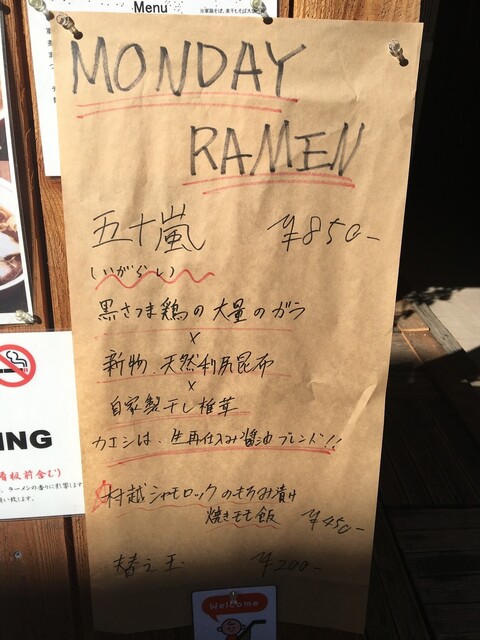 Menu
MONDAY
RAMEN
五十嵐 ¥850-
(いがらし)
黒さつま鶏の大量のガラ
×
新物、天然利尻昆布
×
自家製干し椎茸
カエシは、生再仕込み醤油ブレンド!!
村越シャモロックのもろみ漬け
焼きモモ飯 ¥450-
替え玉 ¥200-
ING
看板前含む)
、ラーメンの香りに影響します
Welcome